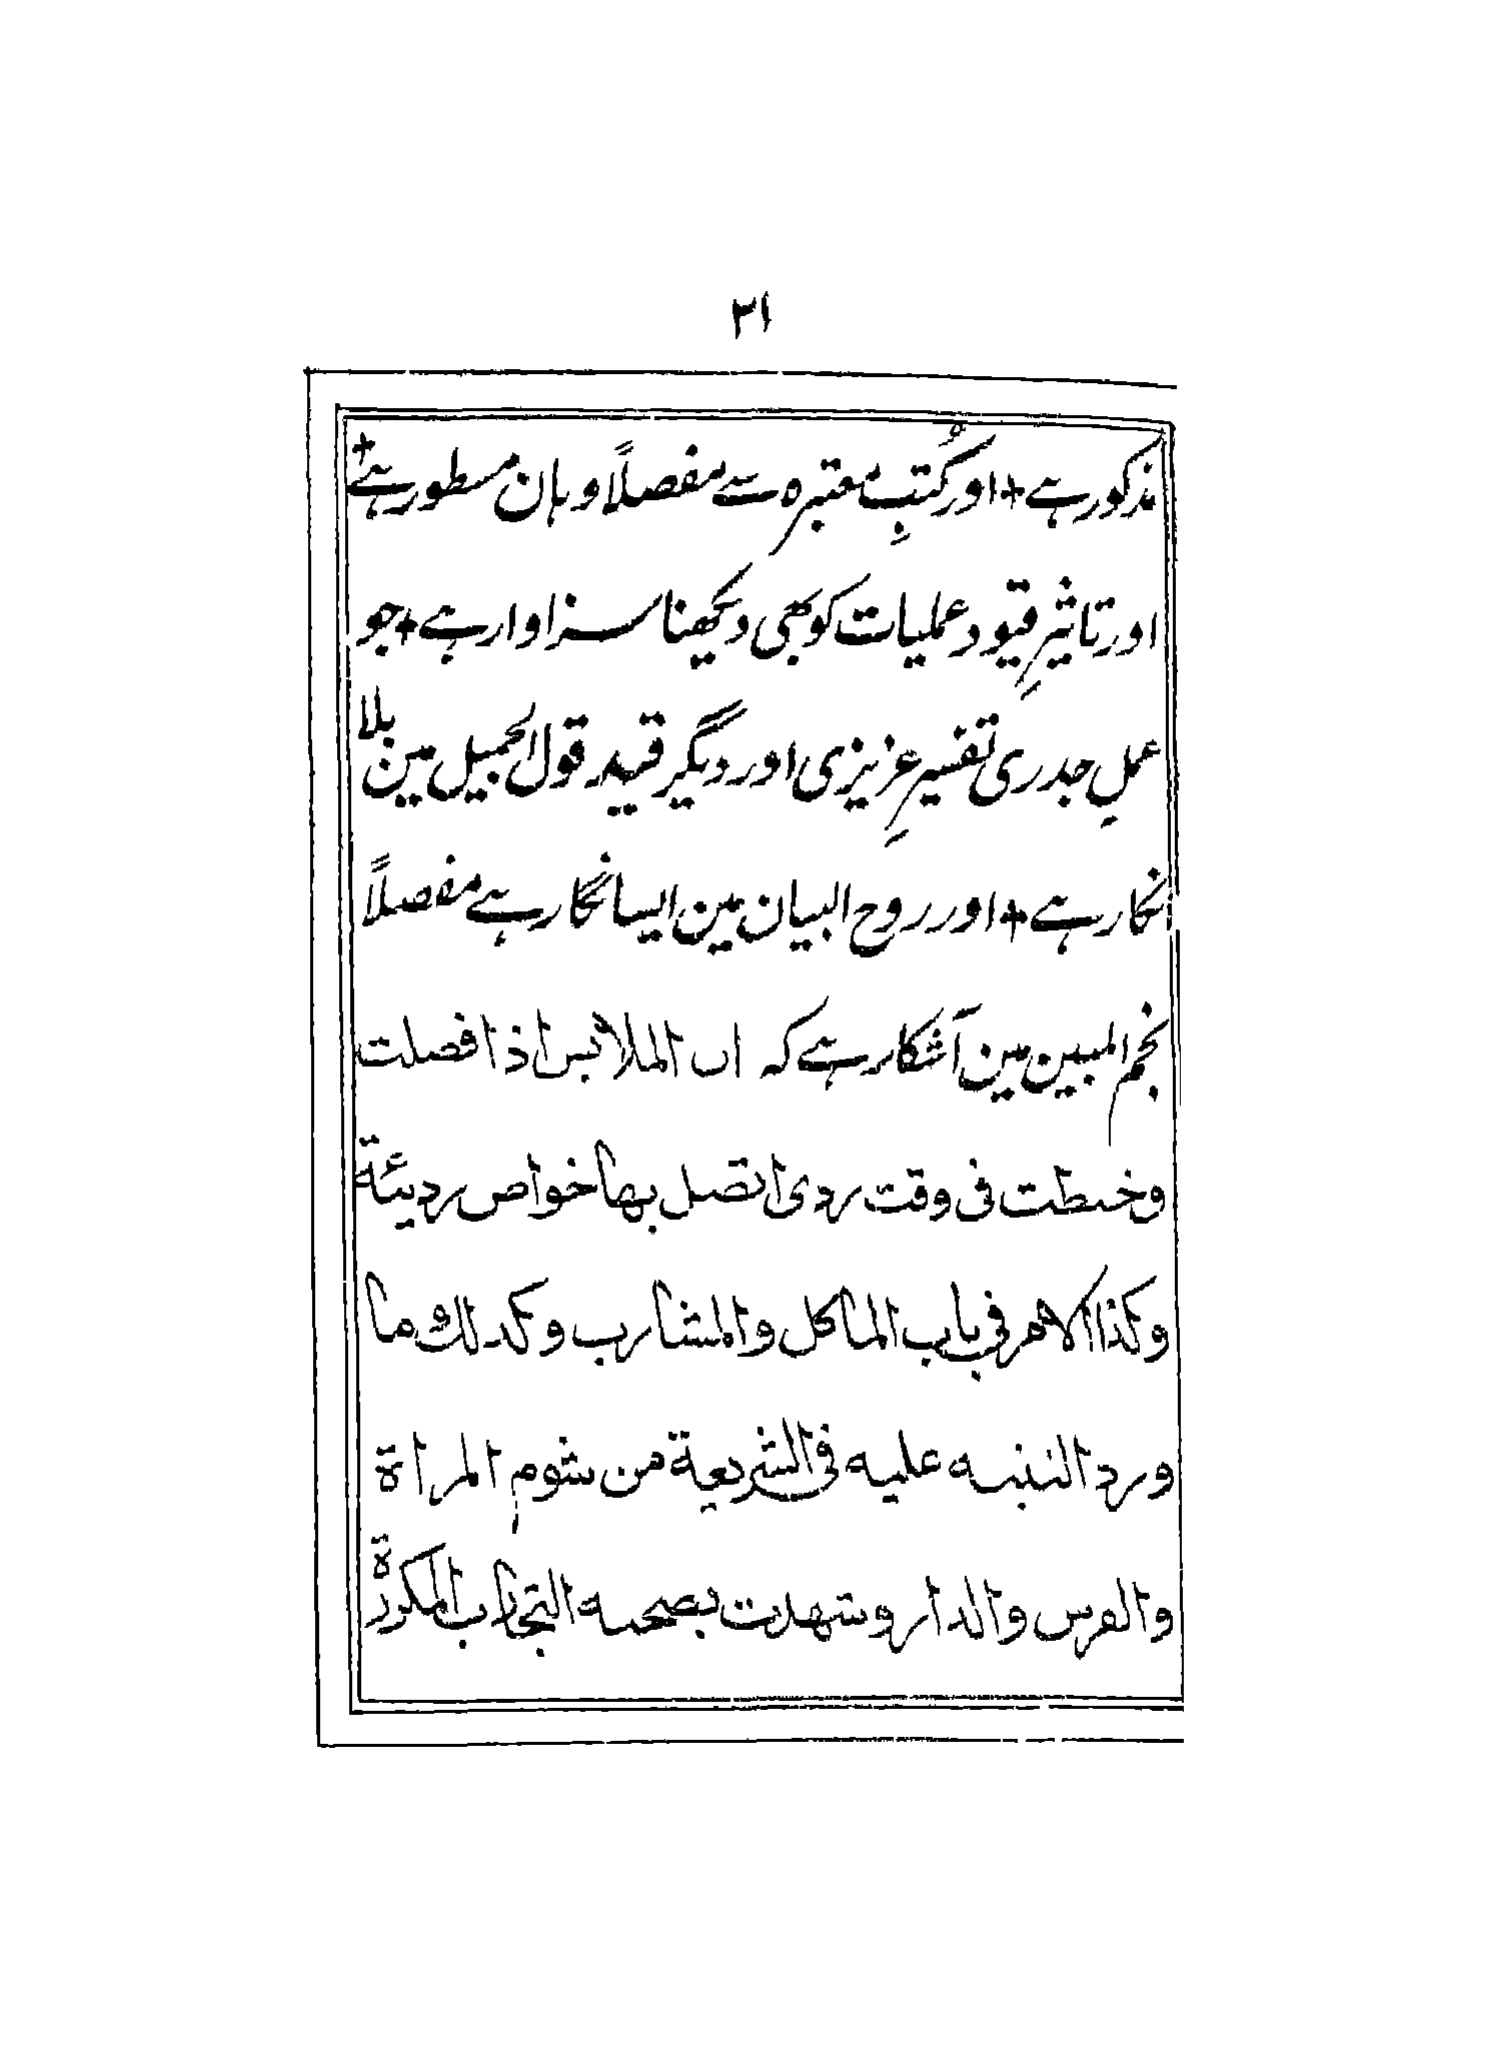 ۳۱
مذکور ہے + اور کُتبِ معتبرہ سے مفصلاً وہان مسطور ہے +
اور تاثیرِ قیود عملیات کو بھی دیکھنا سزاوار ہے + جو
عملِ جدری تفسیرِ عزیزی اور دیگر قید قول الجمیل مین بلا
نکار ہے + اور روح البیان مین ایسا نگار ہے مفصلاً
نجم المبین مین آشکار ہے کہ ان الملابس اذا فصلت
وخیطت فی وقت ردی اتصل بها خواص ردیئة
وکذا الامر فی باب الماکل والمشارب وکذلك ما
ورد التنبیه علیه فی الشریعة من شوم المراة
والفرس والدار وشهدت بصحته التجارب المکررة